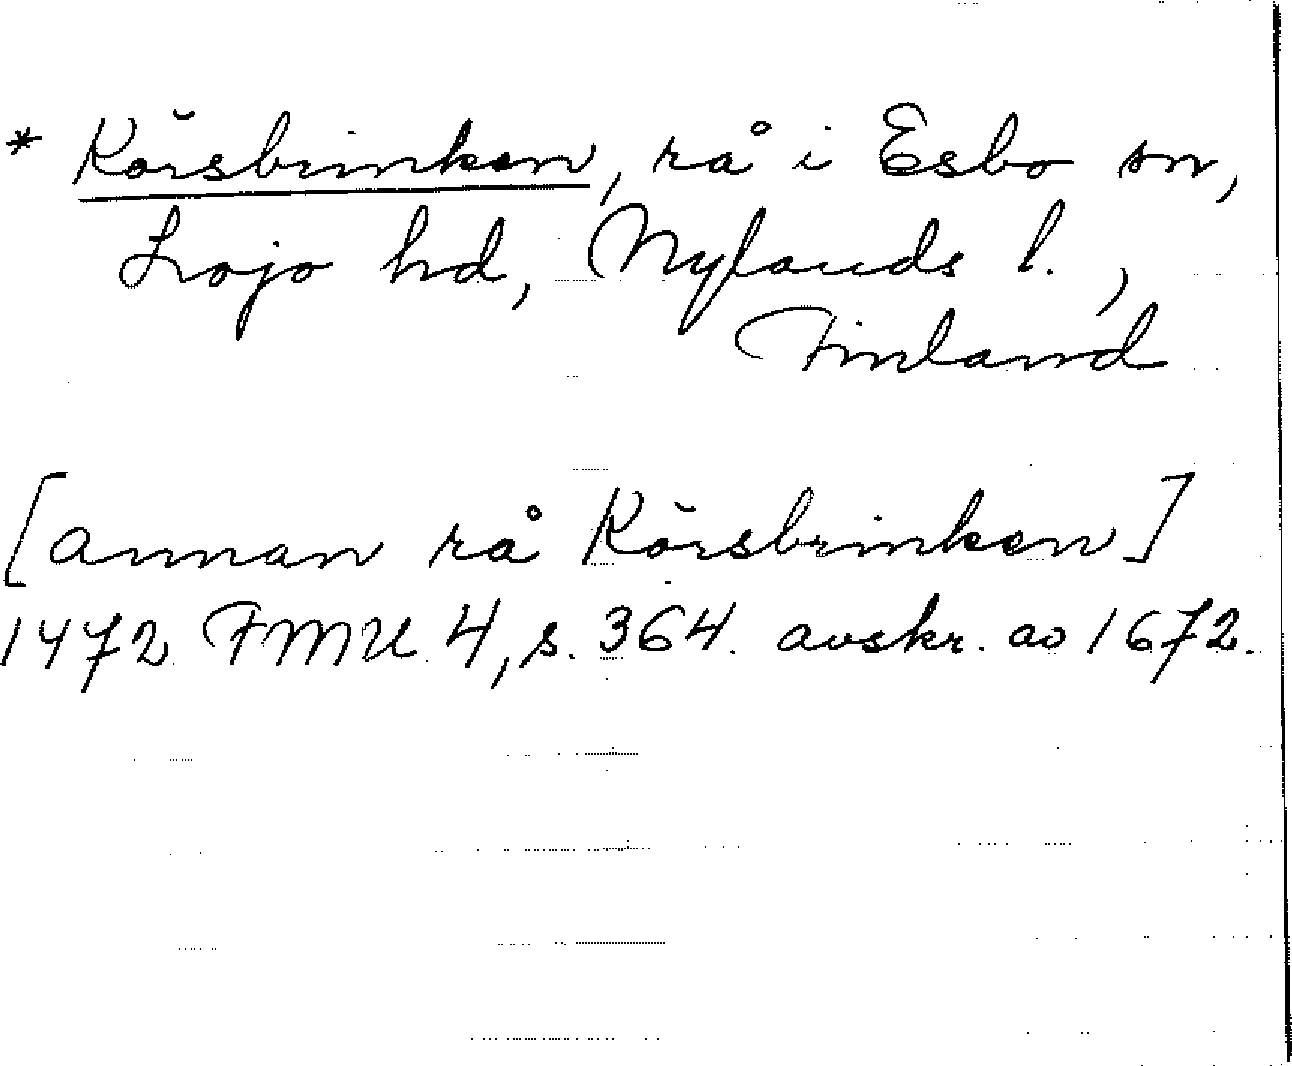 * Körsbrinken, rå i Esbo sn,
Lojo hd, Nylands l.,
Finland
[annan rå Körsbrinken]
1472 FMU 4, s. 364. avskr. av 1672.